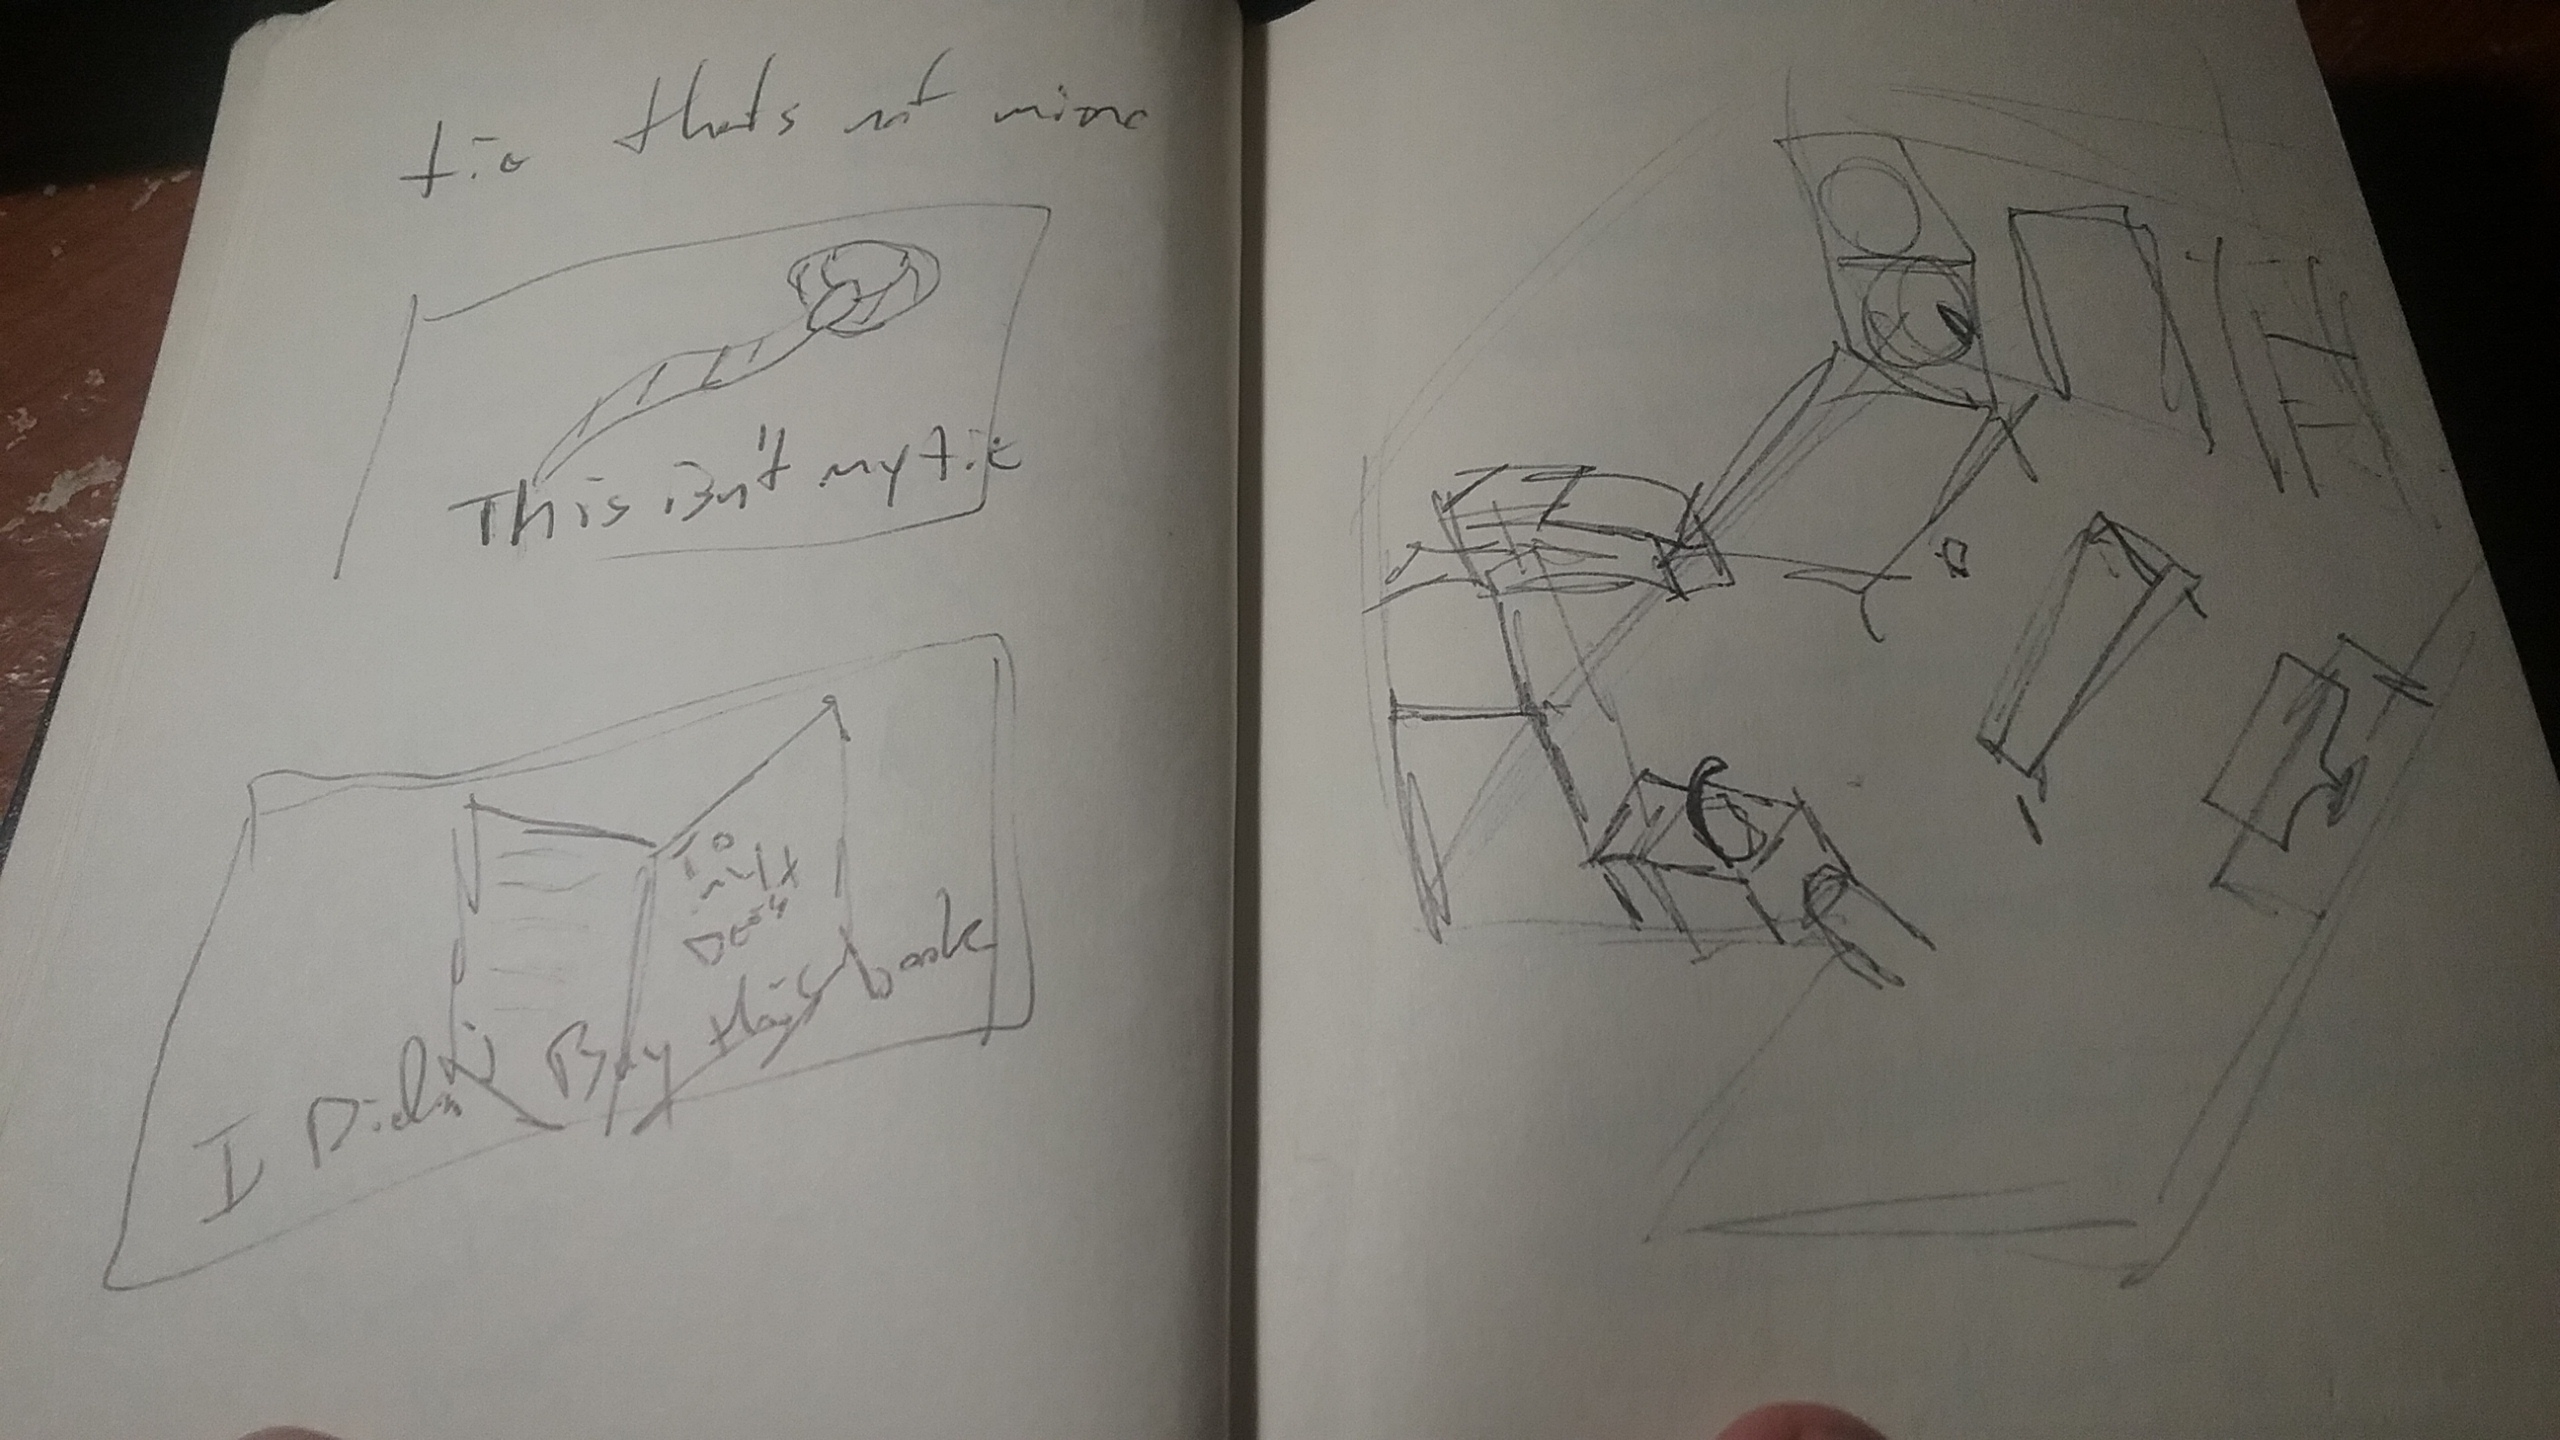 tie that's not mine
This isn't my tie
To
my
I Didn't Buy this book